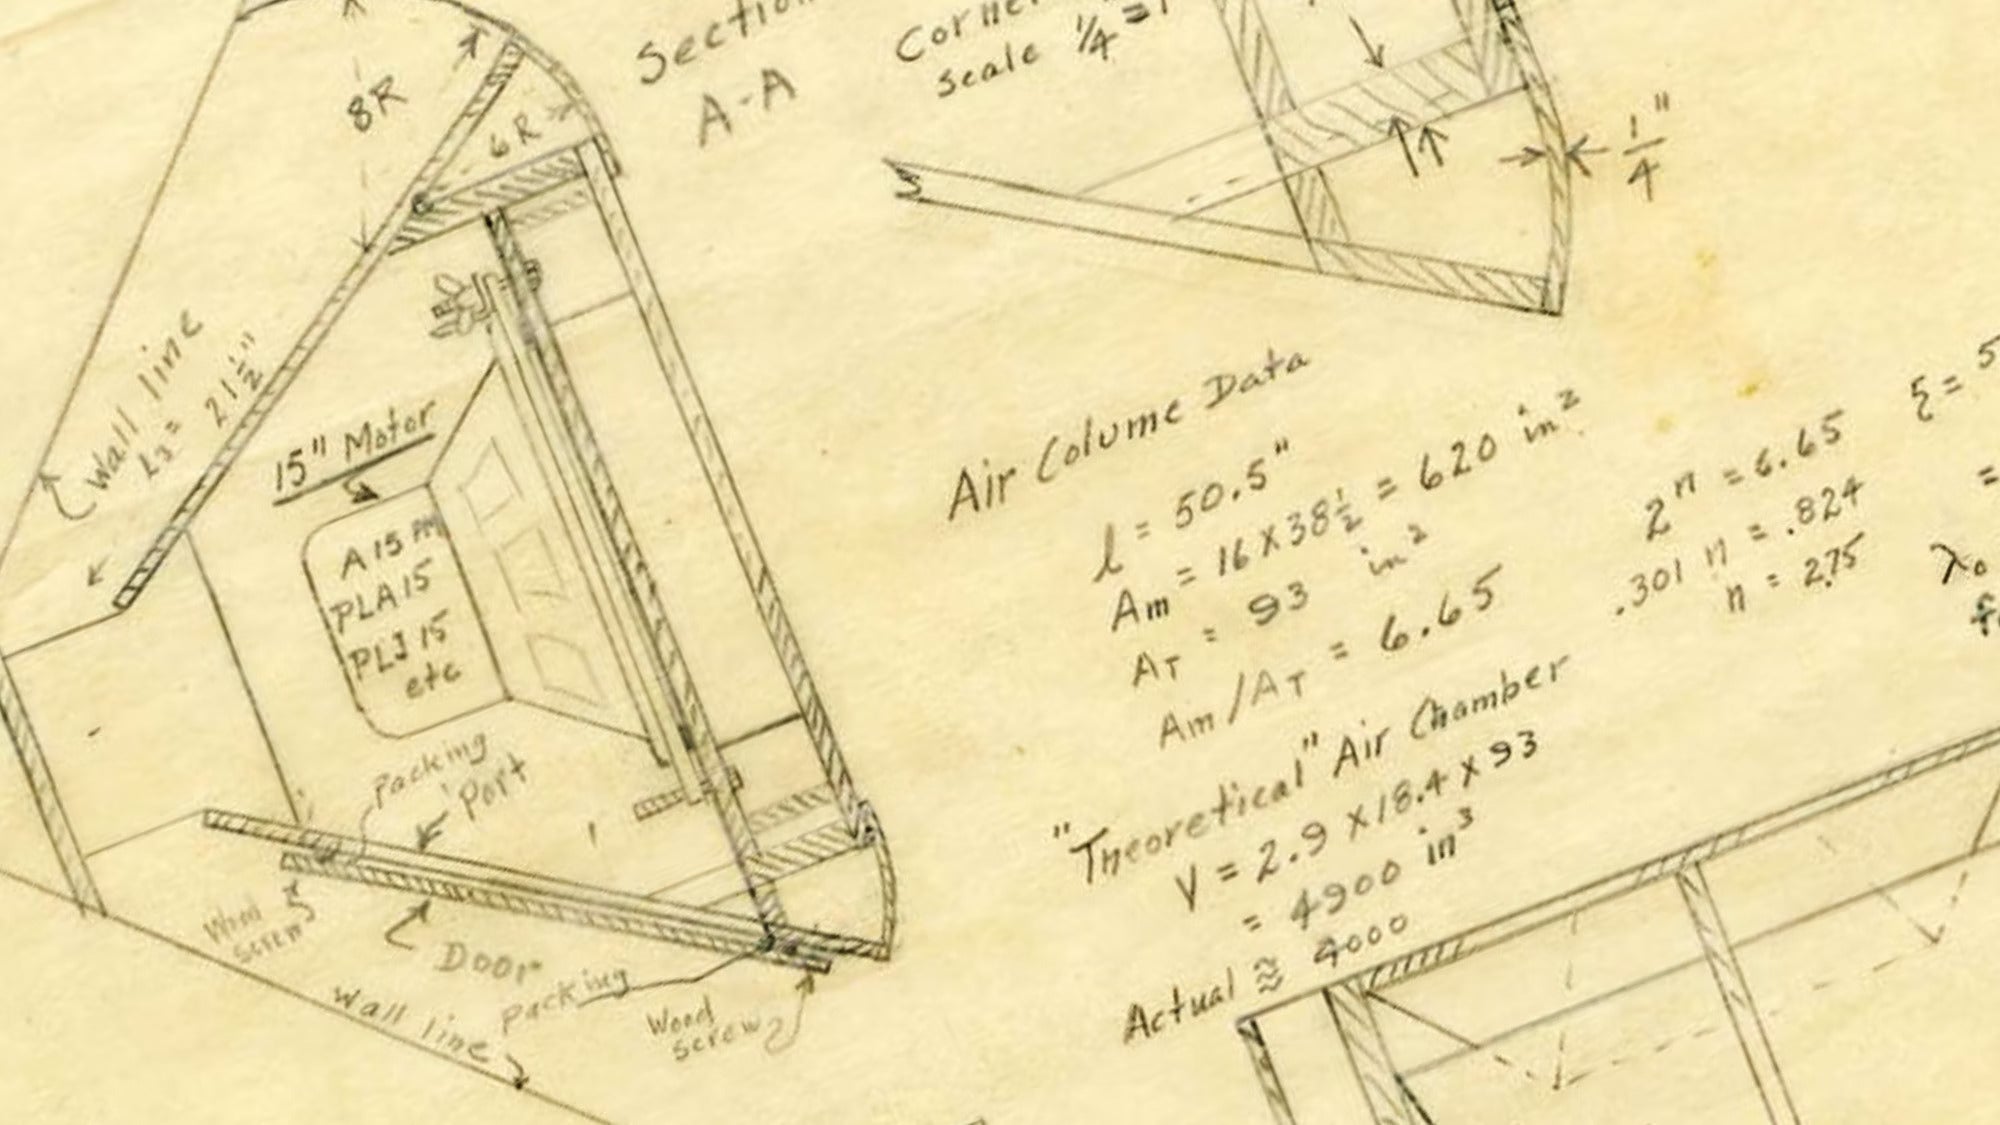 8R
6R
Section
A-A
Corner
Scale 1/4 = 1
1/4"
Wall line
L3 = 21 1/2"
15" Motor
A 15 AM
PLA 15
PLJ 15
etc
Packing
Port
Wood
screw
Door
Packing
Wall line
Wood
screw
Air Colume Data
l = 50.5"
Am = 16 X 38 1/2 = 620 in²
AT = 93 in²
Am/AT = 6.65
2ⁿ = 6.65
.301 n = .824
n = 2.75
ξ = 5
=
λo
f
"Theoretical" Air Chamber
V = 2.9 X 18.4 X 93
= 4900 in³
Actual ≈ 4000